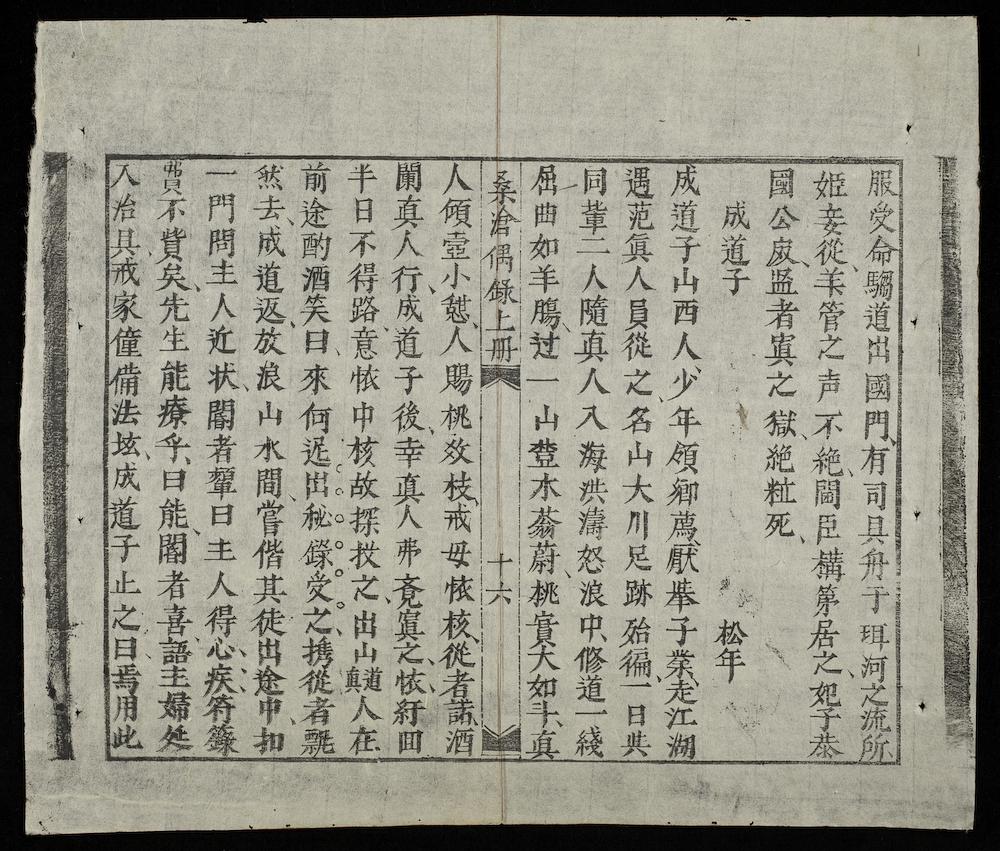 服受命騶道出國門、有司具舟于珥河之流所
姬妾從、羊管之声不絶、閫臣構第居之、妃子恭
國公㝡盜者寘之獄、絶粒死、
成道子 松年
成道子山西人、少年領鄕薦、厭擧子業、走江湖
遇范眞人員從之、名山大川足跡殆徧一日共
同輩二人隨真人入海洪濤怒浪中、修道一綫
屈曲如羊膓、过一山登木蓊蔚、桃實大如斗、真
桑滄偶錄上册 十六
人傾壺小憇、人賜桃效枝、戒毋懷核、從者諾、酒
闌真人行、成道子後、幸真人弗覔寘之、懷紆囬
半日不得路、意懷中核故探投之、出山道真人在
前途酌酒笑曰、來何遅出秘錄受之、携從者飄
然去、成道返、放浪山水間、嘗偕其徒出途中、扣
一門問主人近状、閽者顰曰主人得心疾、符籙
貫不貲矣、先生能療乎、曰能、閽者喜語主婦延
入治具、戒家僮備法坛、成道子止之曰焉用此